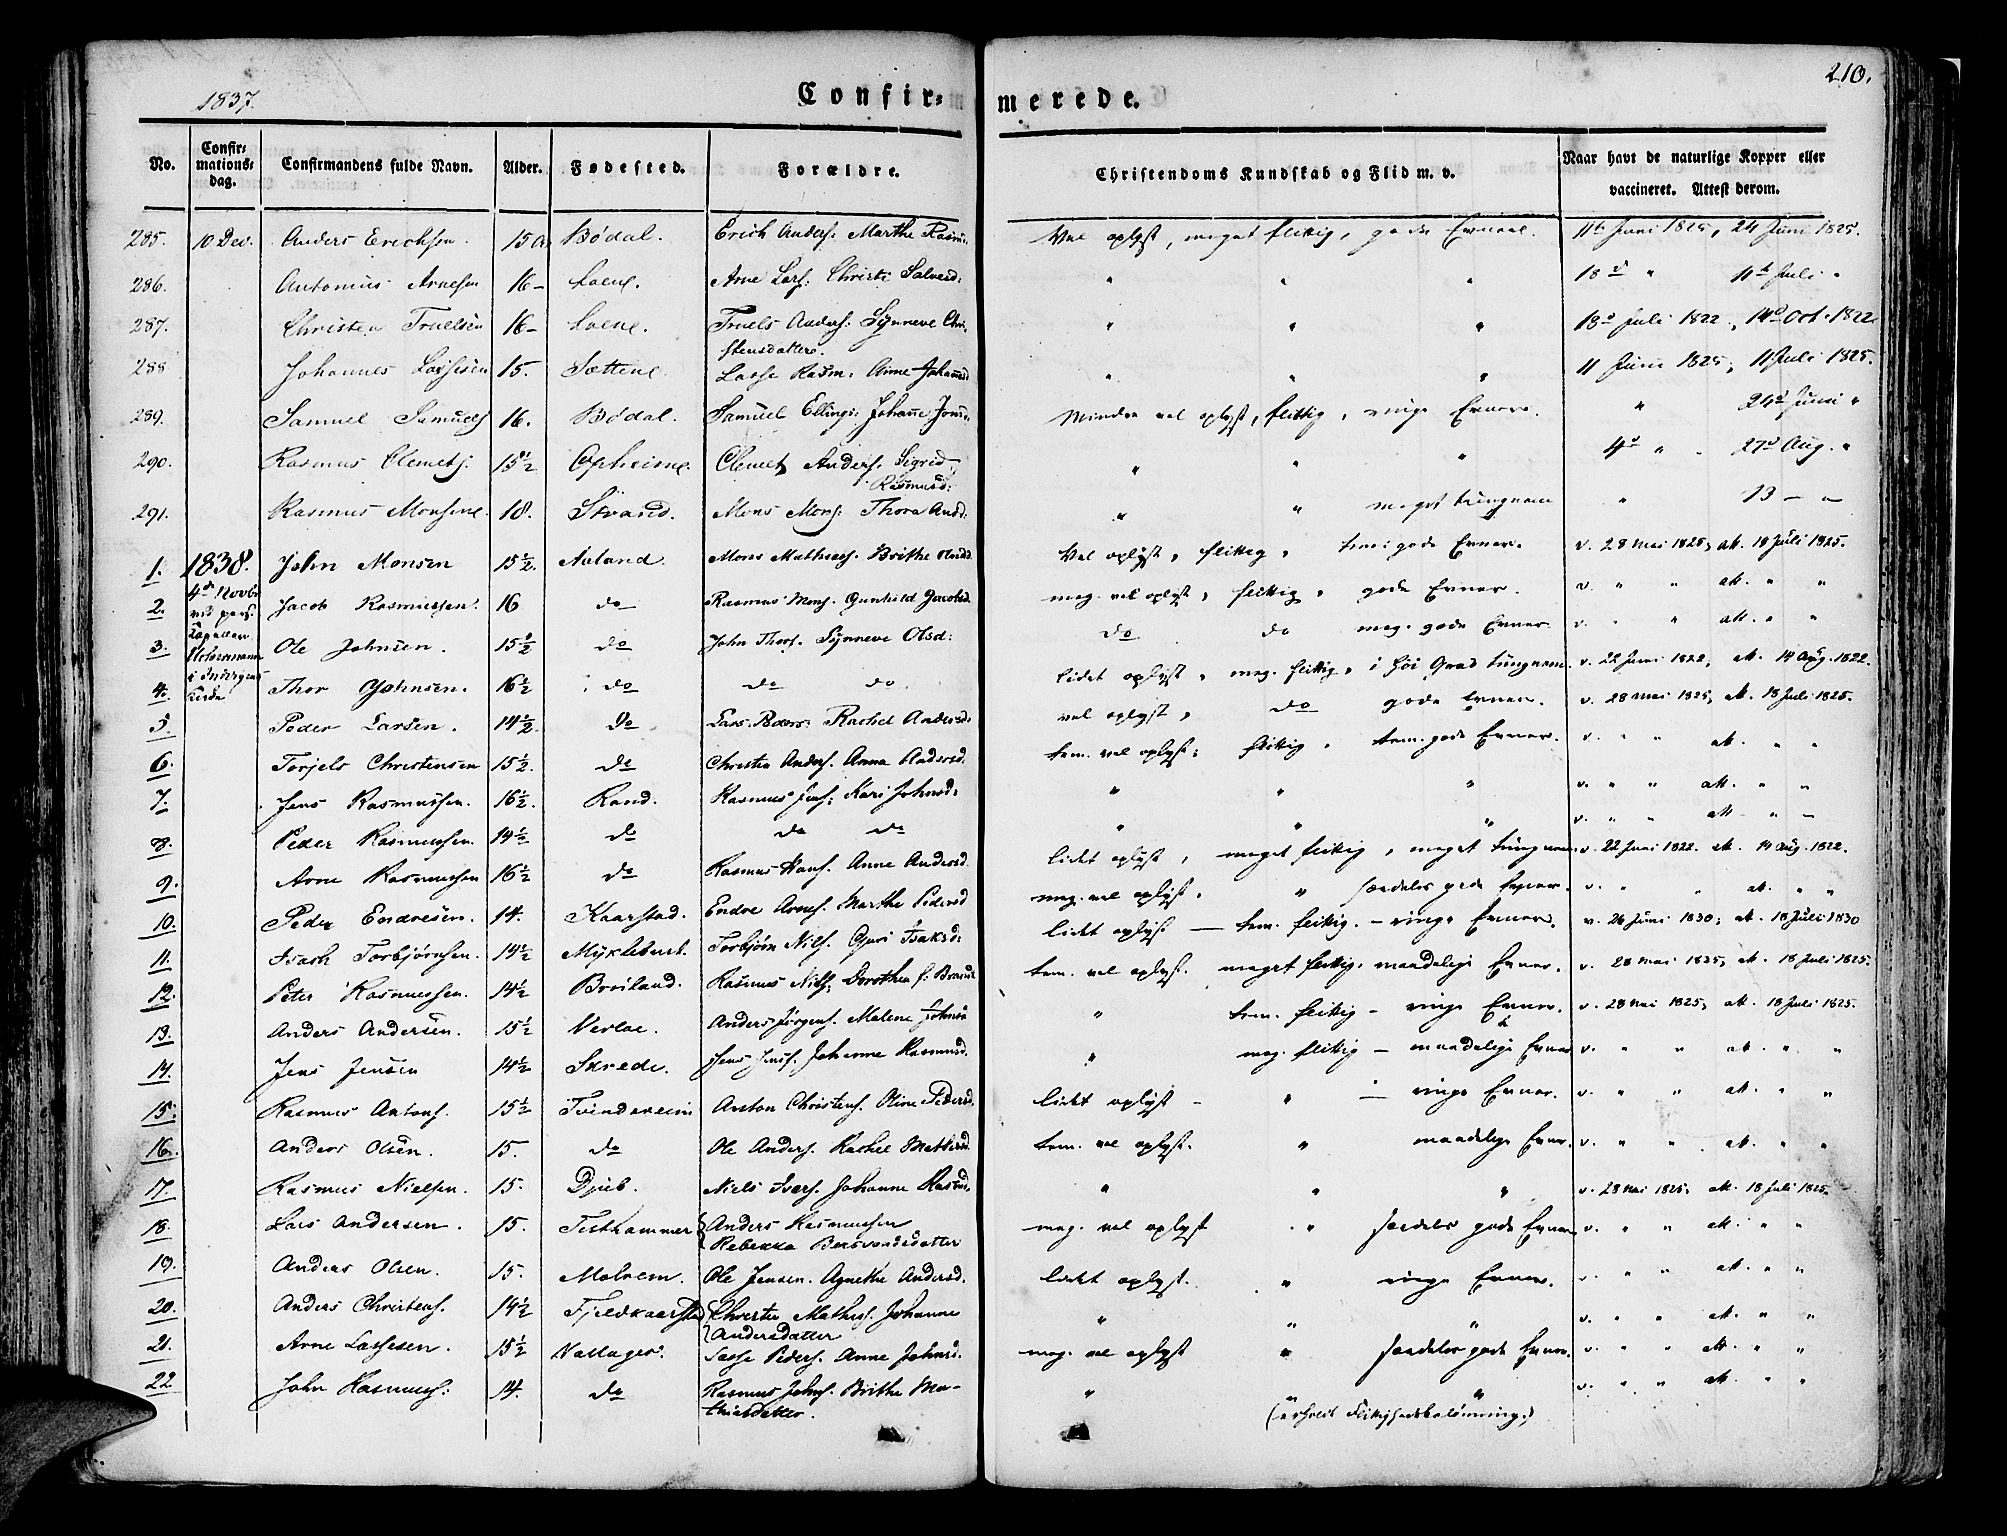 1837.
Confir=
merede.
210.
No. Confir=mations=dag. Confirmandens fulde Navn. Alder. Fødested. Forældre. Christendoms Kundskab og Flid m. v. Naar havt de naturlige Kopper eller vaccineret. Attest derom.
285. 10 Dec. Anders Erichsen. 15 Bødal. Erich Anders. Marthe Rasm: Vel oplyst, meget flittig, gode Evner. 11te Juni 1825, 24 Juni 1825.
286. Antonius Arnesen 16 – Loene. Arne Lars: Christi Salvesd: " " " 18 " 11te Juli "
287. Christen Truelsen 16 – Loene. Truels Anders: Synneve Chri-
stensdatter. " " " 13 Juli 1822, 14 Oct. 1822
288 Johannes Lassesen 15. Sættene. Lasse Rasm: Anne Johannesd " " " 11 Juni 1825, 11 Juli 1825.
289. Samuel Samuels 16. Bødal. Samuel Ellings: Johanne Jons: Minder vel oplyst, flittig, ringe Evner. " 24 Juni "
290. Rasmus Clemets. 15½ Opheime. Clemet Anders. Sigrid
Rasmusd: " " " 4 " 27 Aug. "
291. Rasmus Monsene. 18. Strand. Mons Mons: Thora And: " " meget tungnem " 13 – "
1. 1838. John Monsen 15½. Aaland. Mons Mathias. Brithe Vel oplyst, flittig, tem. gode Evner. v. 28 Mai 1825, att. 18 Juli 1825.
2. 4de Novbr. Jacob Rasmussen. 16 do Rasmus Mons. Gunhild Jacobsd. meg. vel oplyst, flittig, gode Evner. v. " " att. " "
ved pers.
Capellan
3. Ole Johnsen. 15½ do John Thors. Synneve Olsd: do do meg. gode Evner. v. " " att. " "
i Indvigens
Kirke
4. Thor Johnsen. 16½ do do do lidet oplyst, meg. flittig, i høi Grad tungnem. v. 22 Juni 1822, att. 14 Aug. 1822.
5. Peder Larsen. 14½. do Lars Peders: Rachel Andersd: vel oplyst, do gode Evner. v. 28 Mai 1825, att. 18 Juli 1825.
6. Torjels Christensen 15½. do Christen Anders. Anna Andersd. tem. vel oplyst, flittig, tem. gode Evner. v. " " att. " "
7. Jens Rasmussen. 16½. Rand. Rasmus Jens: Kari Johnsd: " " " v. " " att. " "
8. Peder Rasmussen. 14½ do do do " " " v. " " att. " –
9. Arne Rasmussen 16½ do Rasmus Hans. Anne Andersd. lidet oplyst, meget flittig, meget tungnem. v. 22 Juni 1822. att. 14 Aug. 1822.
10. Peder Endresen. 14. Kaarstad. Endre Arnes. Marthe Pedersd meg. vel oplyst. " særdeles gode Evner. v. " " att. " "
11. Isach Torbjørnsen. 14½ Myklebust. Torbjørn Nils. Guri Isaksd: lidet oplyst – tem. flittig. – ringe Evner. v. 26 Juni 1830, att. 18 Juli 1830
12. Peter Rasmussen. 14½ Breiland. Rasmus Niels: Dorothea tem. vel oplyst. meget flittig. maadelige Evner. v. 28 Mai 1825, att. 18 Juli 1825.
13. Anders Andersen. 15½ Verloe. Anders Jørgens. Malene " tem. flittig – ringe Evner. v. 28 Mai 1825, att. 18 Juli 1825.
14. Jens Jensen 14½ Skrede. Jens Jens. Johanne Rasmusd. " meg. flittig – maadelige Evner v. " " att. " "
15. Rasmus Antons. 15½ Tvinderein Anton Christens. Oline Pedersd. lidet oplyst – " – ringe Evner. v. " " att. " "
16. Anders Olsen. 15. do Ole Anders. Rachel tem. vel oplyst. " maadelige Evner. v. " " att. " "
17. Rasmus Nielsen. 15. Djub. Niels Ivers. Johanne Rasm. " " " v. 28 Mai 1825, att. 18 Juli 1825.
18. Lars Andersen. 15. Testhammer Anders Rasmussen
Rebekka Bersvendsdatter meg. vel oplyst " særdeles gode Evner v. " " att. " "
19. Anders Olsen. 15. Molnem. Ole Jensen. Agnethe Andersd. lidet oplyst. " ringe Evner. v. " " att. " "
20. Anders Christens. 14½ Fjeldkaarstad Christen Mathis. Johanne
Andersdatter " " " v. " " att. " "
21. Arne Lassesen. 15½ Vallager. Lasse Peders. Anne Johnsd. meg. vel oplyst " særdeles gode Evner. v. " " att. " "
22 John Rasmuss: 14. do Rasmus Johns. Brithe Ma-
thiesdatter. " " " v. " " att. " "
(erholdt Flittighedsbelønning.)